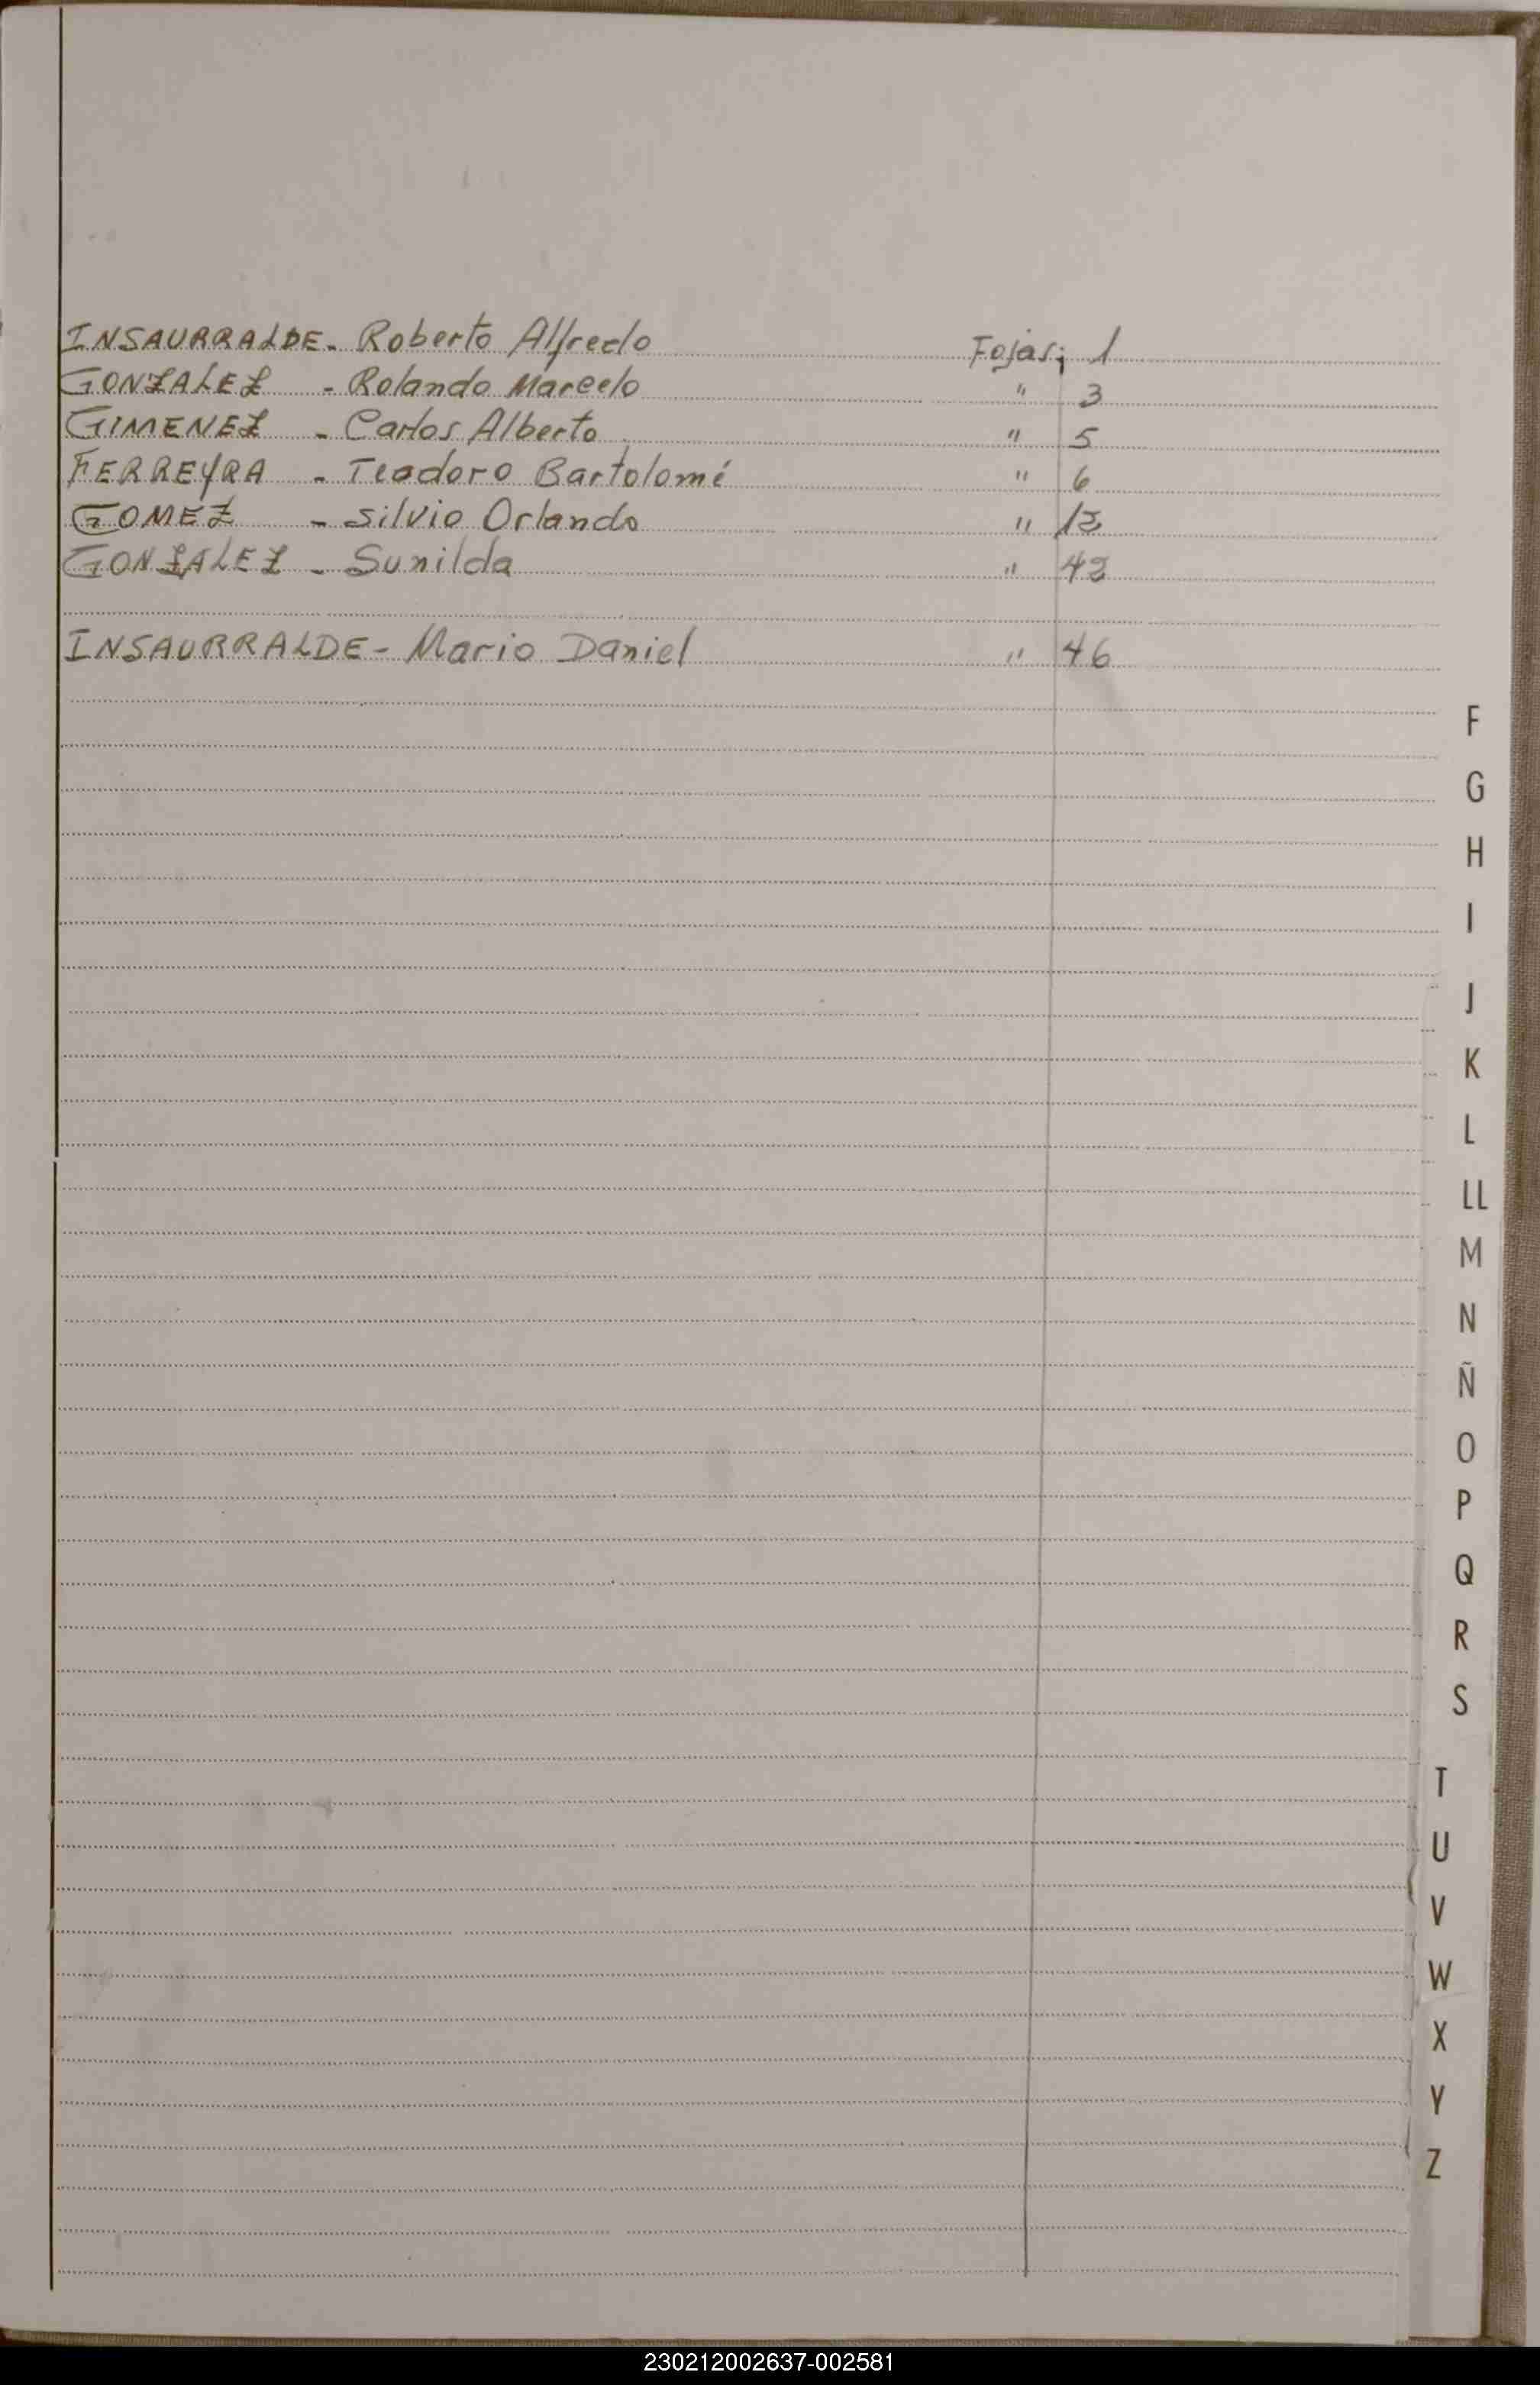 INSAURRALDE - Roberto Alfredo Fojas; 1
GONZALEZ - Rolando Marcelo " 3
GIMENEZ - Carlos Alberto " 5
FERREYRA - Teodoro Bartolomé " 6
GOMEZ - Silvio Orlando "
GONZALEZ - Sunilda "
INSAURRALDE - Mario Daniel " 46
F
G
H
I
J
K
L
LL
M
N
Ñ
O
P
Q
R
S
T
U
V
W
X
Y
Z
230212002637-002581